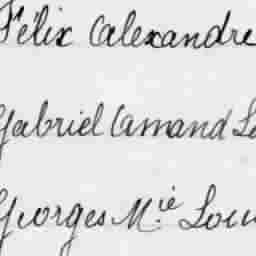 Félix Alexandre
Gabriel Amand
Georges M.ie Lou